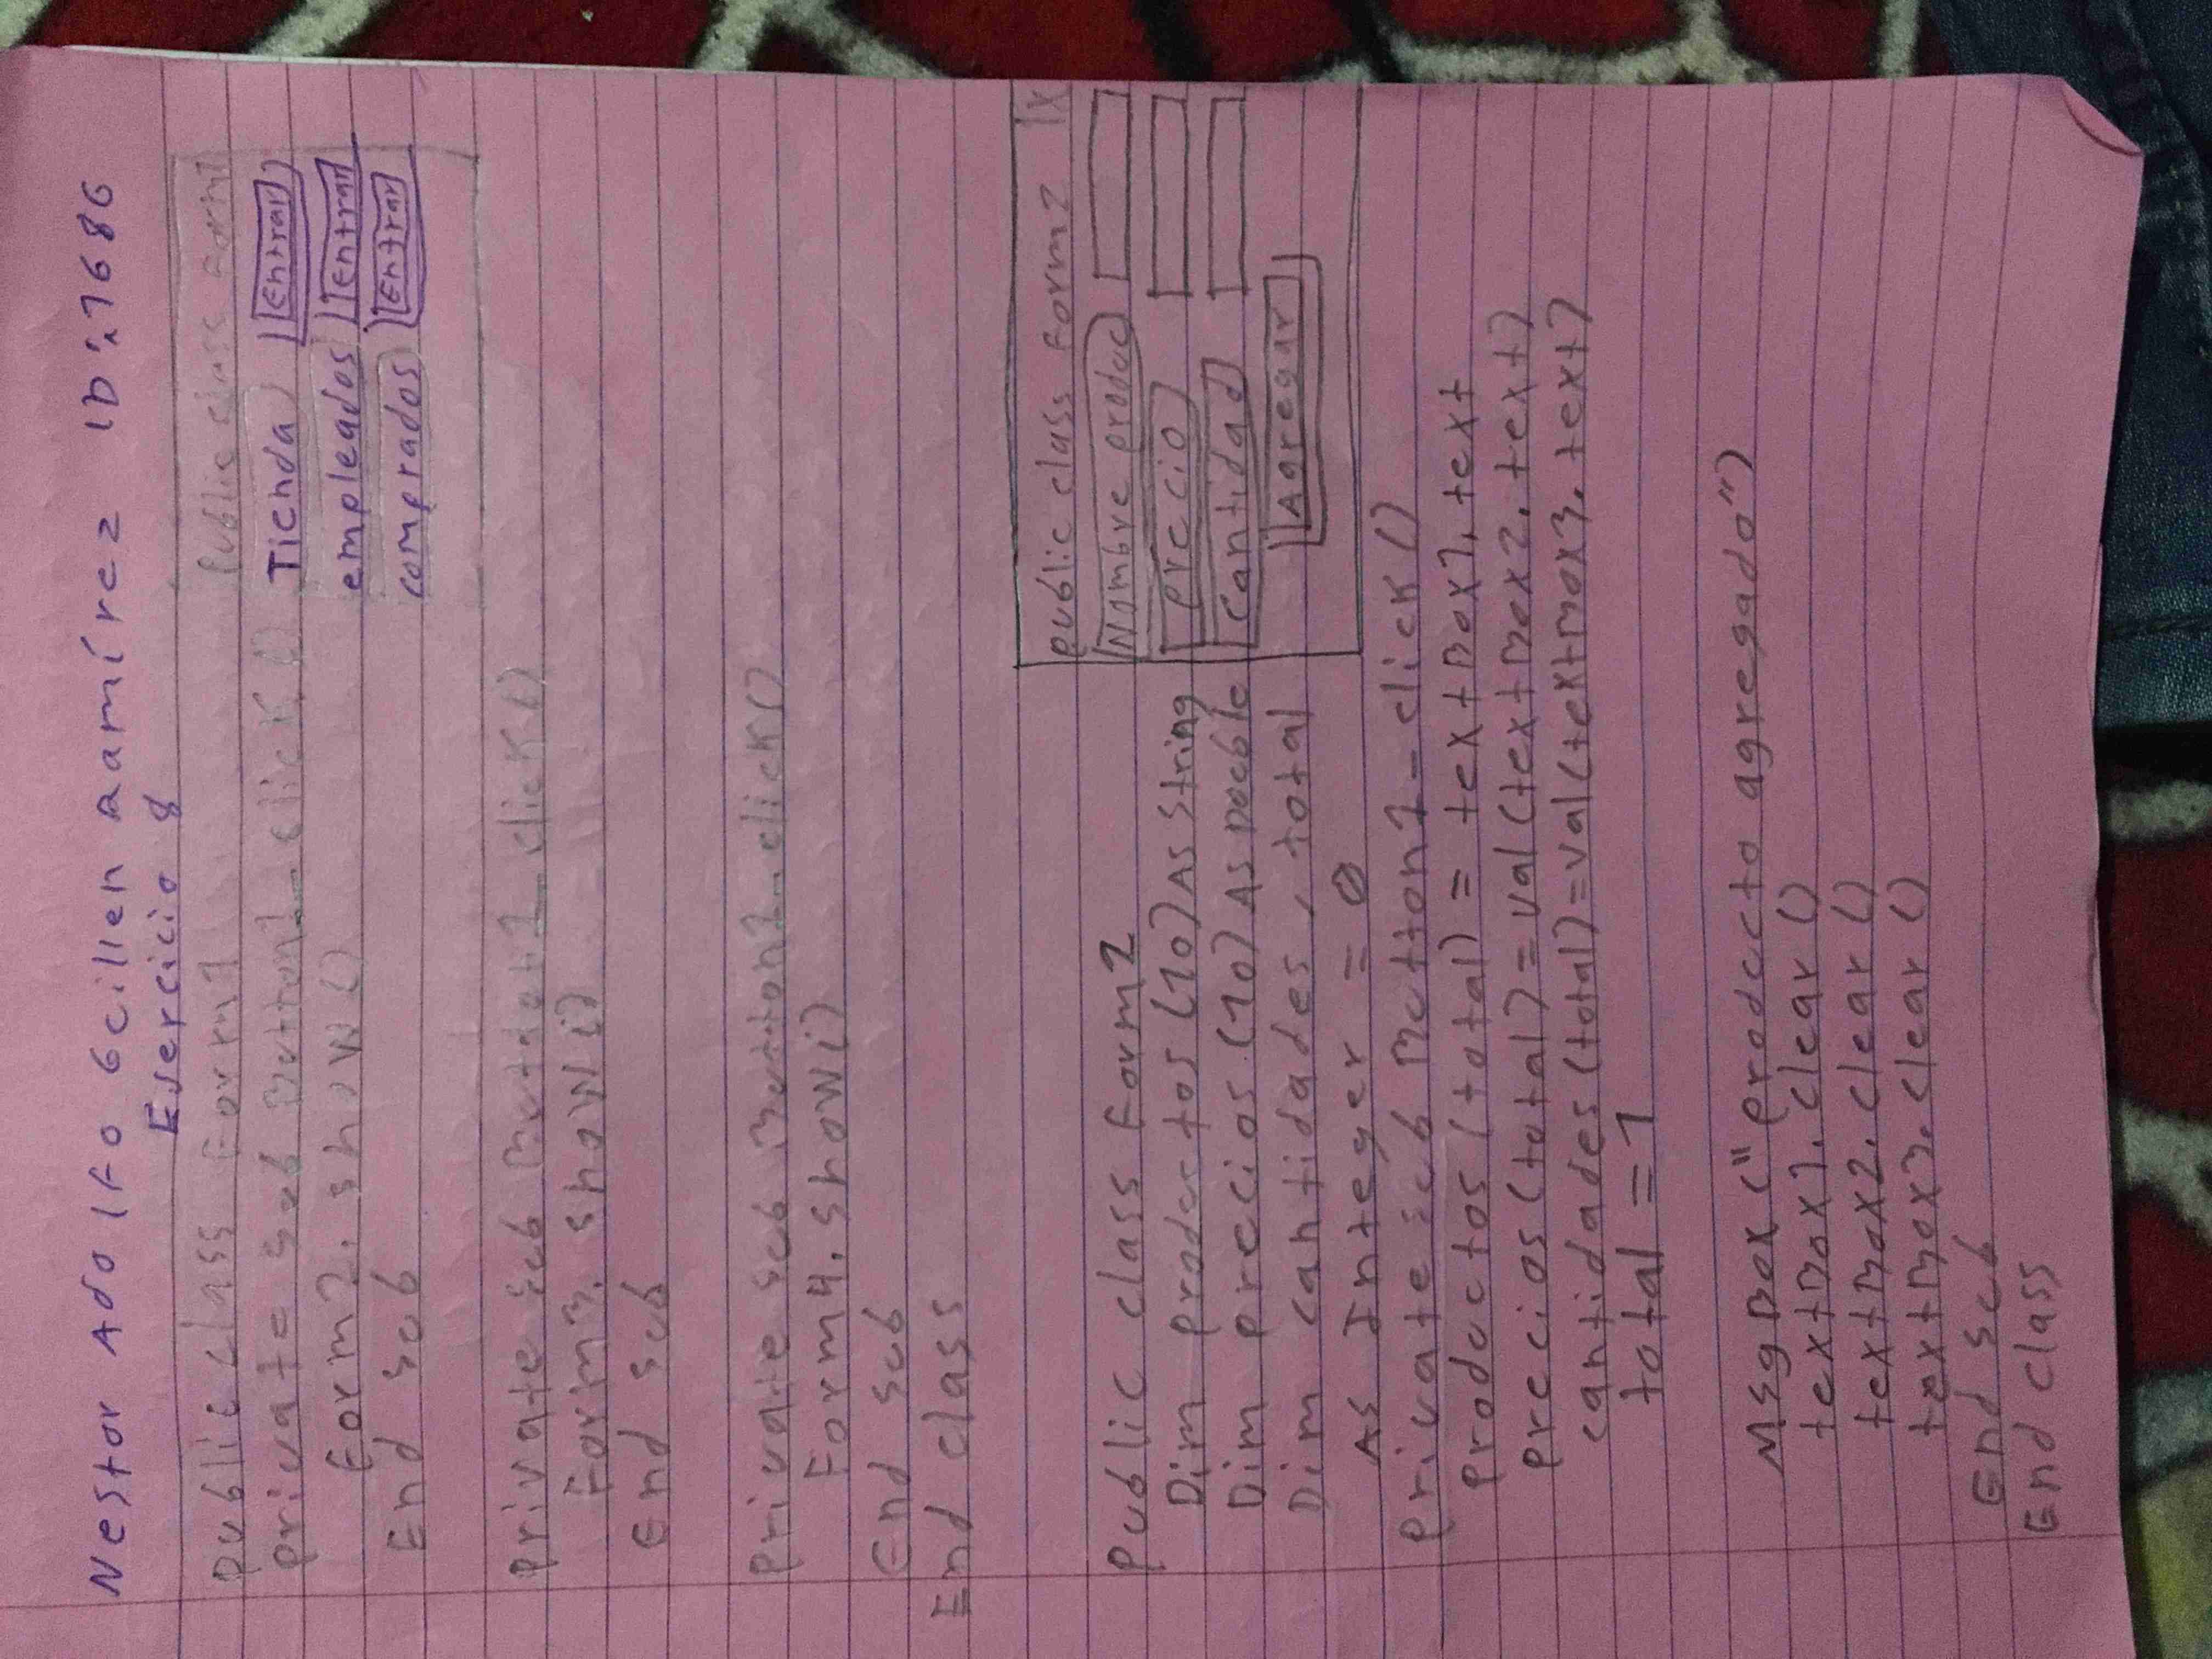 Nestor Adolfo Guillen Ramírez ID: 7686
Esercicio 8
public class Form1
private sub Button1_click()
Form2. show()
End sub
public class Form1
Tienda Entrar
empleados Entrar
comprados Entrar
private sub Button1 click()
Form3. show()
End sub
private sub Button1_click()
Form4. show()
End sub
End class
public class Form2 X
Nombre produc
preccio
Cantidad
Agregar
Public class Form2
Dim productos (10) As String
Dim precios (10) As Double
Dim cantidades, total
As Integer = 0
private sub Button1_click()
productos (total) = textBox1. text
precios (total) = val (textBox2. text)
cantidades (total) = val (textBox3. text)
total = 1
MsgBox ("producto agregado")
textBox1. clear ()
textBox2. clear ()
textBox3. clear ()
End sub
End class